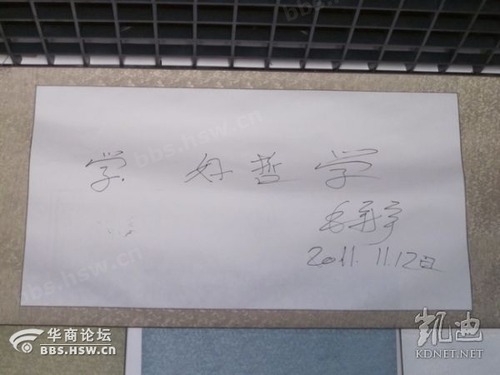 学 好哲学
毛新宇
2011.11.12日
华商论坛
BBS.HSW.CN
凯迪
KDNET.NET
bbs.hsw.cn